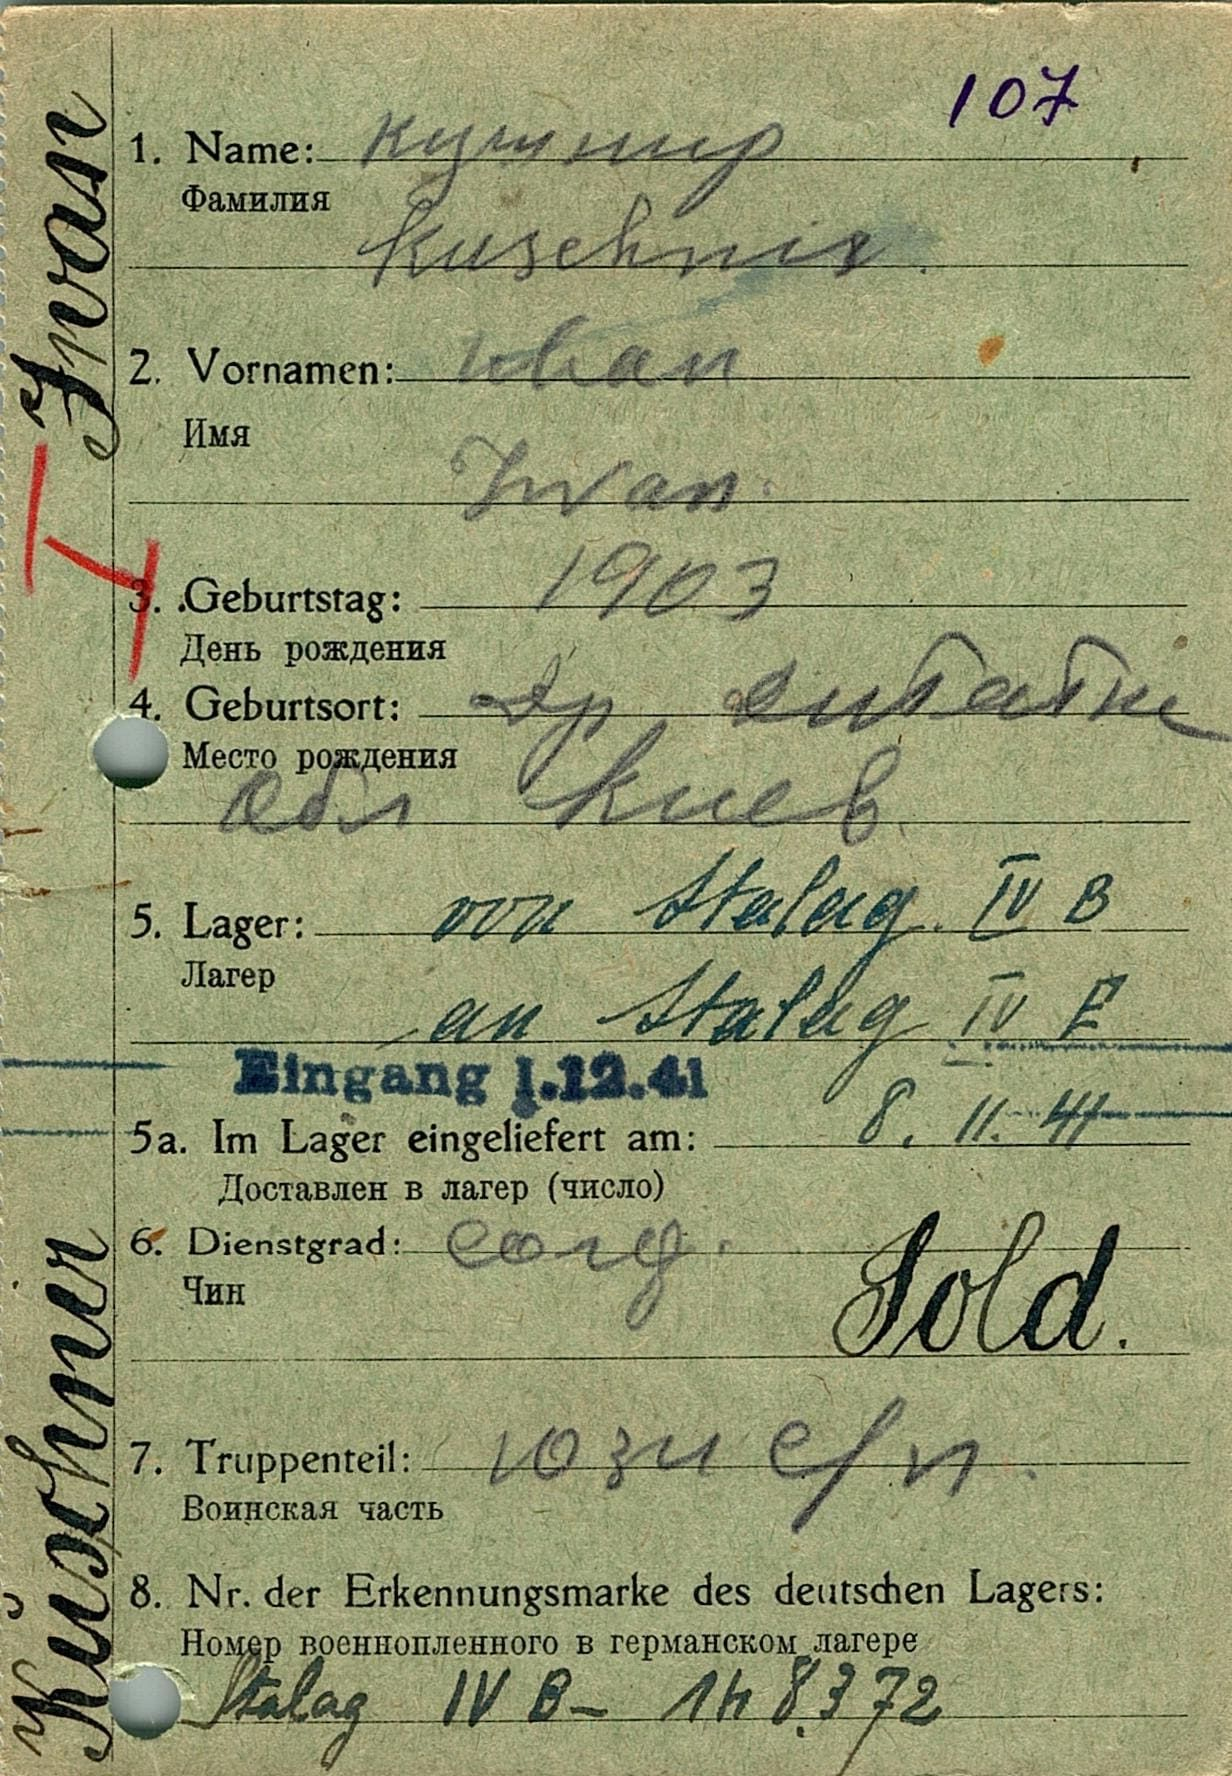 107
1. Name: Кушнир
Фамилия
Kuschnir.
2. Vornamen: Иван
Имя
Iwan.
3. Geburtstag: 1903
День рождения
4. Geburtsort: др
Место рождения
обл Киев.
5. Lager: von Stalag. IV B
Лагер
an Stalag IV E
Eingang 1.12.41
5a. Im Lager eingeliefert am: 8. 11. 41
Доставлен в лагер (число)
6. Dienstgrad: солд.
Чин
Sold.
7. Truppenteil: 103
Воинская часть
8. Nr. der Erkennungsmarke des deutschen Lagers:
Номер военнопленного в германском лагере
Stalag IV B – 148372
Kuschnir Iwan